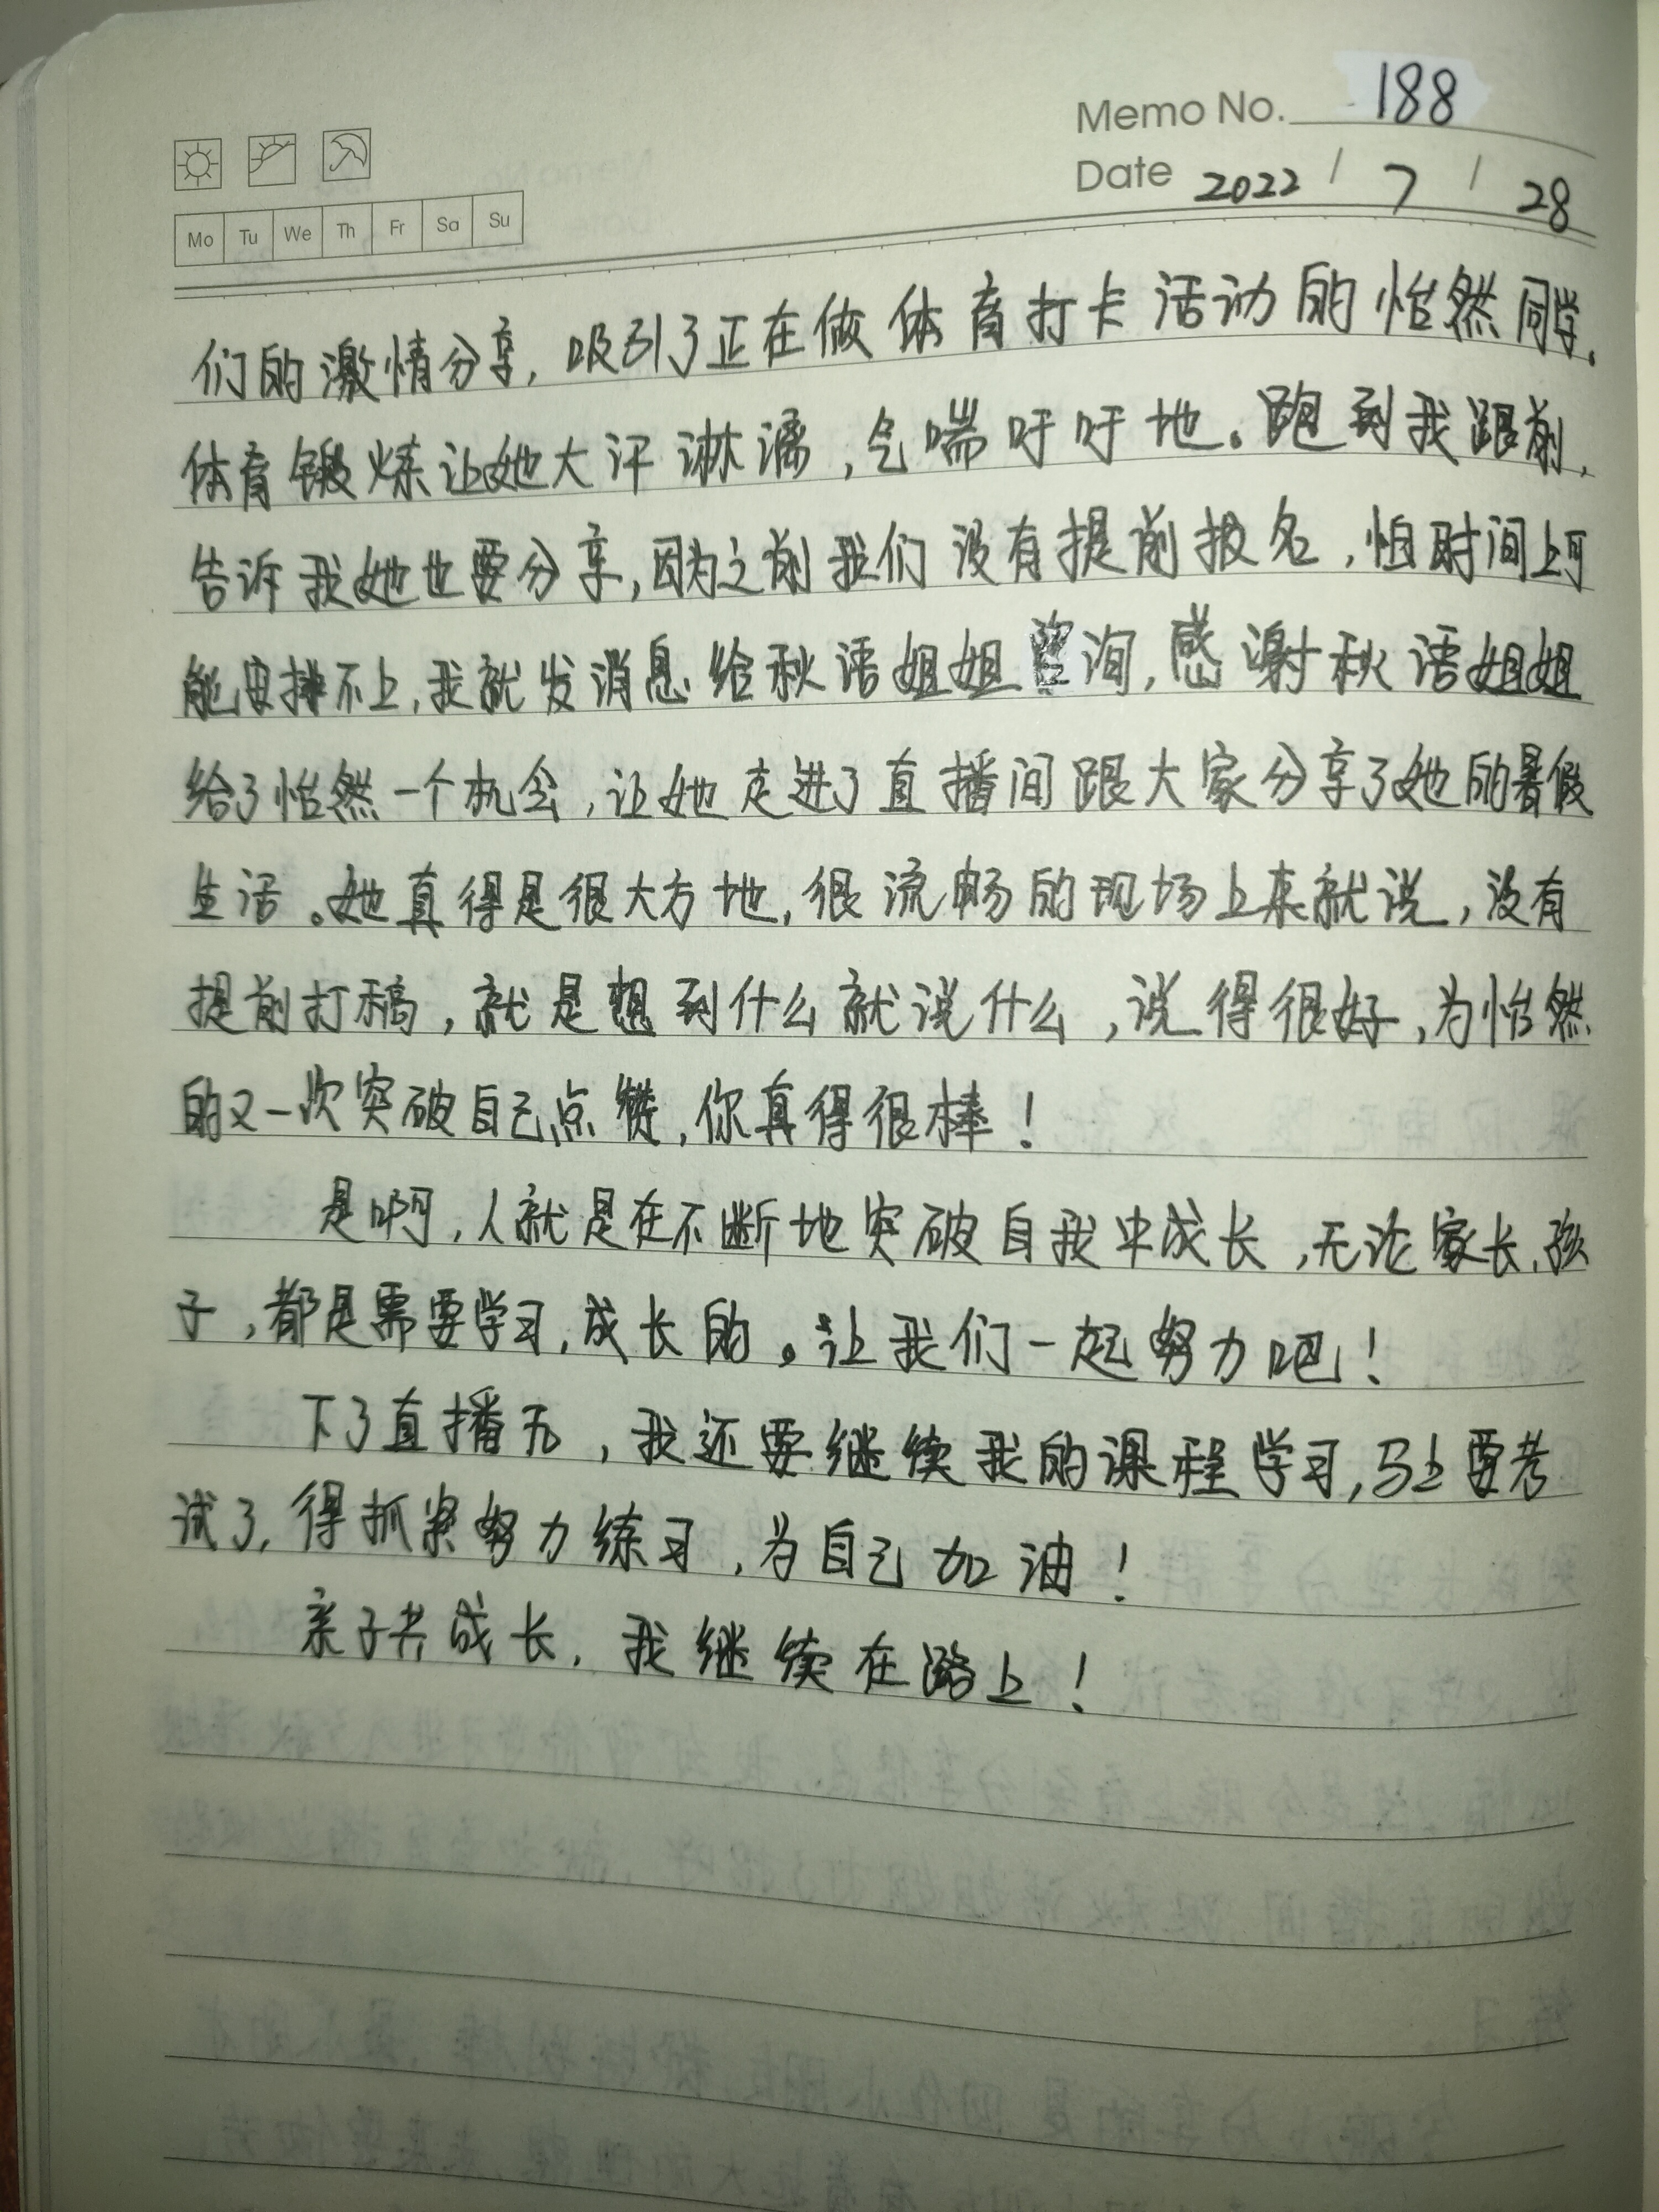 Memo No. 188
Date 2022 / 7 / 28
Mo Tu We Th Fr Sa Su
们的激情分享，吸引了正在做体育打卡活动的怡然同学。
体育锻炼让她大汗淋漓，气喘吁吁地。跑到我跟前，
告诉我她也要分享，因为之前我们没有提前报名，怕时间上可
能安排不上，我就发消息给秋语姐姐咨询，感谢秋语姐姐
给了怡然一个机会，让她走进了直播间跟大家分享了她的暑假
生活。她真得是很大方地，很流畅的现场上来就说，没有
提前打稿，就是想到什么就说什么，说得很好，为怡然
的又一次突破自己点赞，你真得很棒！
是啊，人就是在不断地突破自我中成长，无论家长、孩
子，都是需要学习，成长的。让我们一起努力吧！
下了直播后，我还要继续我的课程学习，马上要考
试了，得抓紧努力练习，为自己加油！
亲子共成长，我继续在路上！